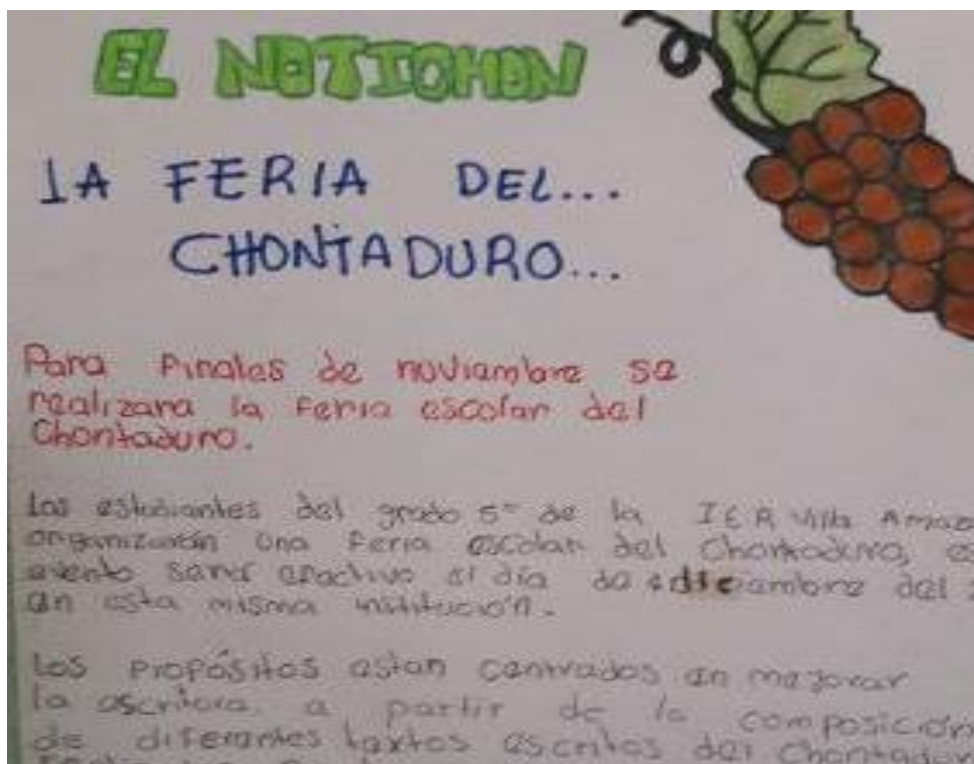 EL NOTICHON
LA FERIA DEL...
CHONTADURO...
Para Finales de noviambre se
realizara la Feria escolar del
Chontaduro.
Los estudiantes del grado 5° de la IER Villa Amaz
organizarán una Feria escolar del Chontaduro, es
evento será efactivo el día de diceambre del
en esta misma institución.
Los Propósitos estan centrados en mejorar
la escritura, a partir de la composición
de diferentes textos escritos del Chontadur